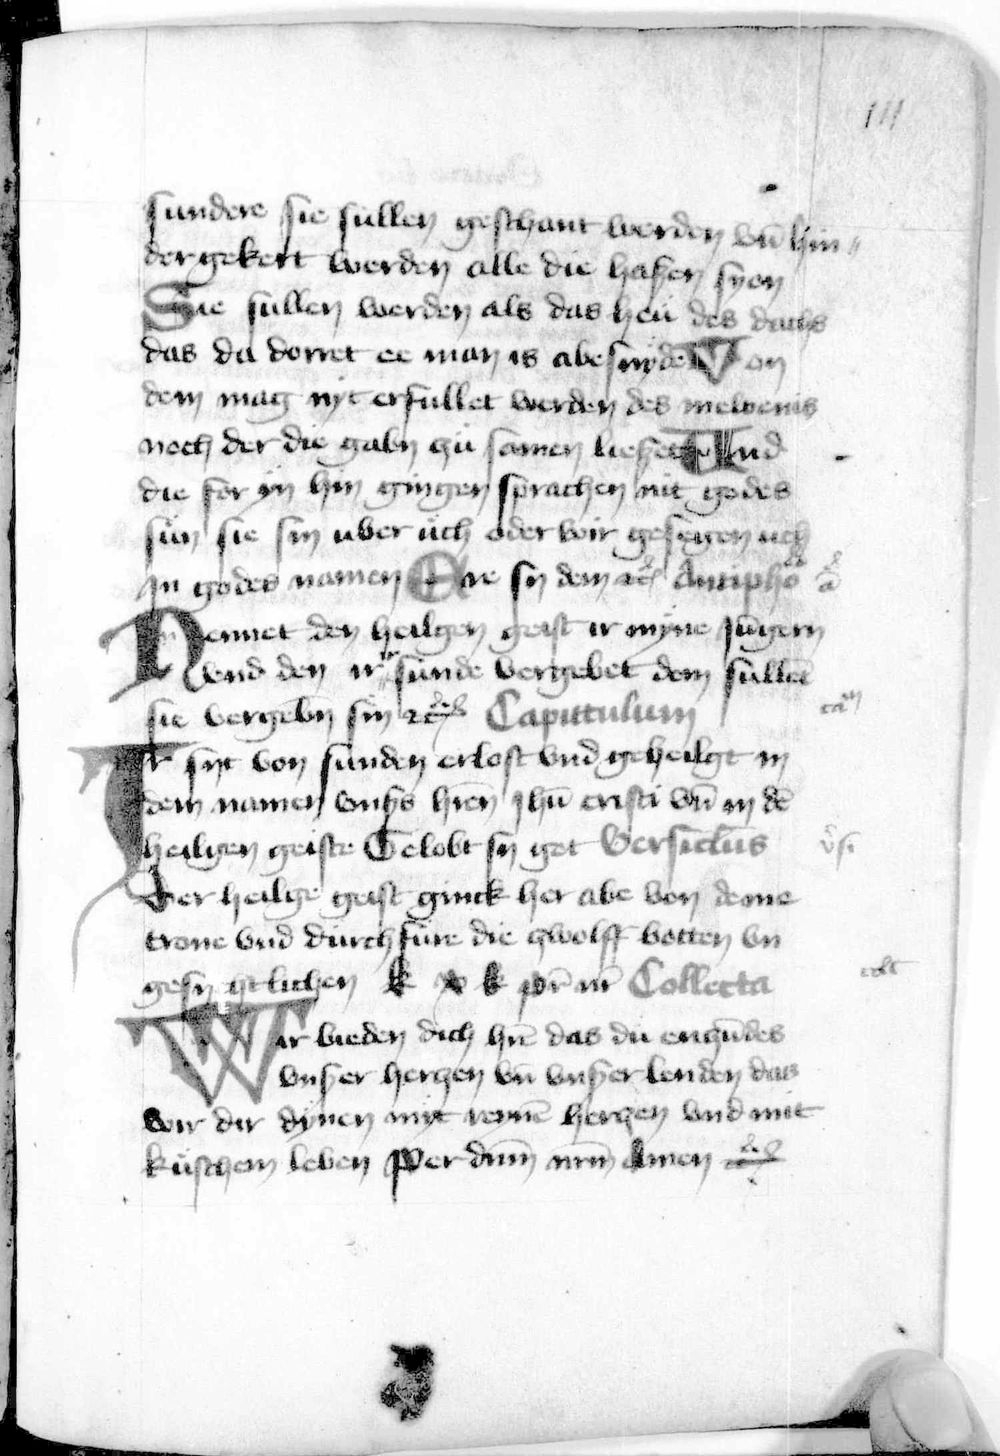 111
sundere sie sullen geschant werden vn̄ hin⸗
dergekert werden alle die haßen syon
Sie sullen werden als das heu des dachs
das da dorret ee man is abesnyde Von
dem mag nyt erfullet werden des
noch der die gabn zu samen ließet Und
die for yn hin gingen sprachen nit godes
sun sie sin uber uch oder wir gesegen uch
In godes namen Ere sy dem ꝛc Antipho a
Nemet den heilgen geist ir myne Jūgern
vnd den ir sunde vergebet dem sullē
sie vergebn sin ꝛc Capittulum
Ir syt von sunden erlost vnd geheilgt in
dem namen vnßs hrēn Jhū cristi vn̄ in dē
heiligen geiste Gelobt sy got Versiclus vs
Der heilge geist ginck her abe von deme
trone vnd durch fure die zwolff botten vn
gesyhtlichen k x k pr̄ nr̄ Collecta colt
Wir bieden dich hrē das du enzūdes
vnßer herzen vn̄ vnßer lenden das
wir dir dynen myt reynē herzen vnd mit
kuschem leben Per dnm̄ nrm̄ Amen